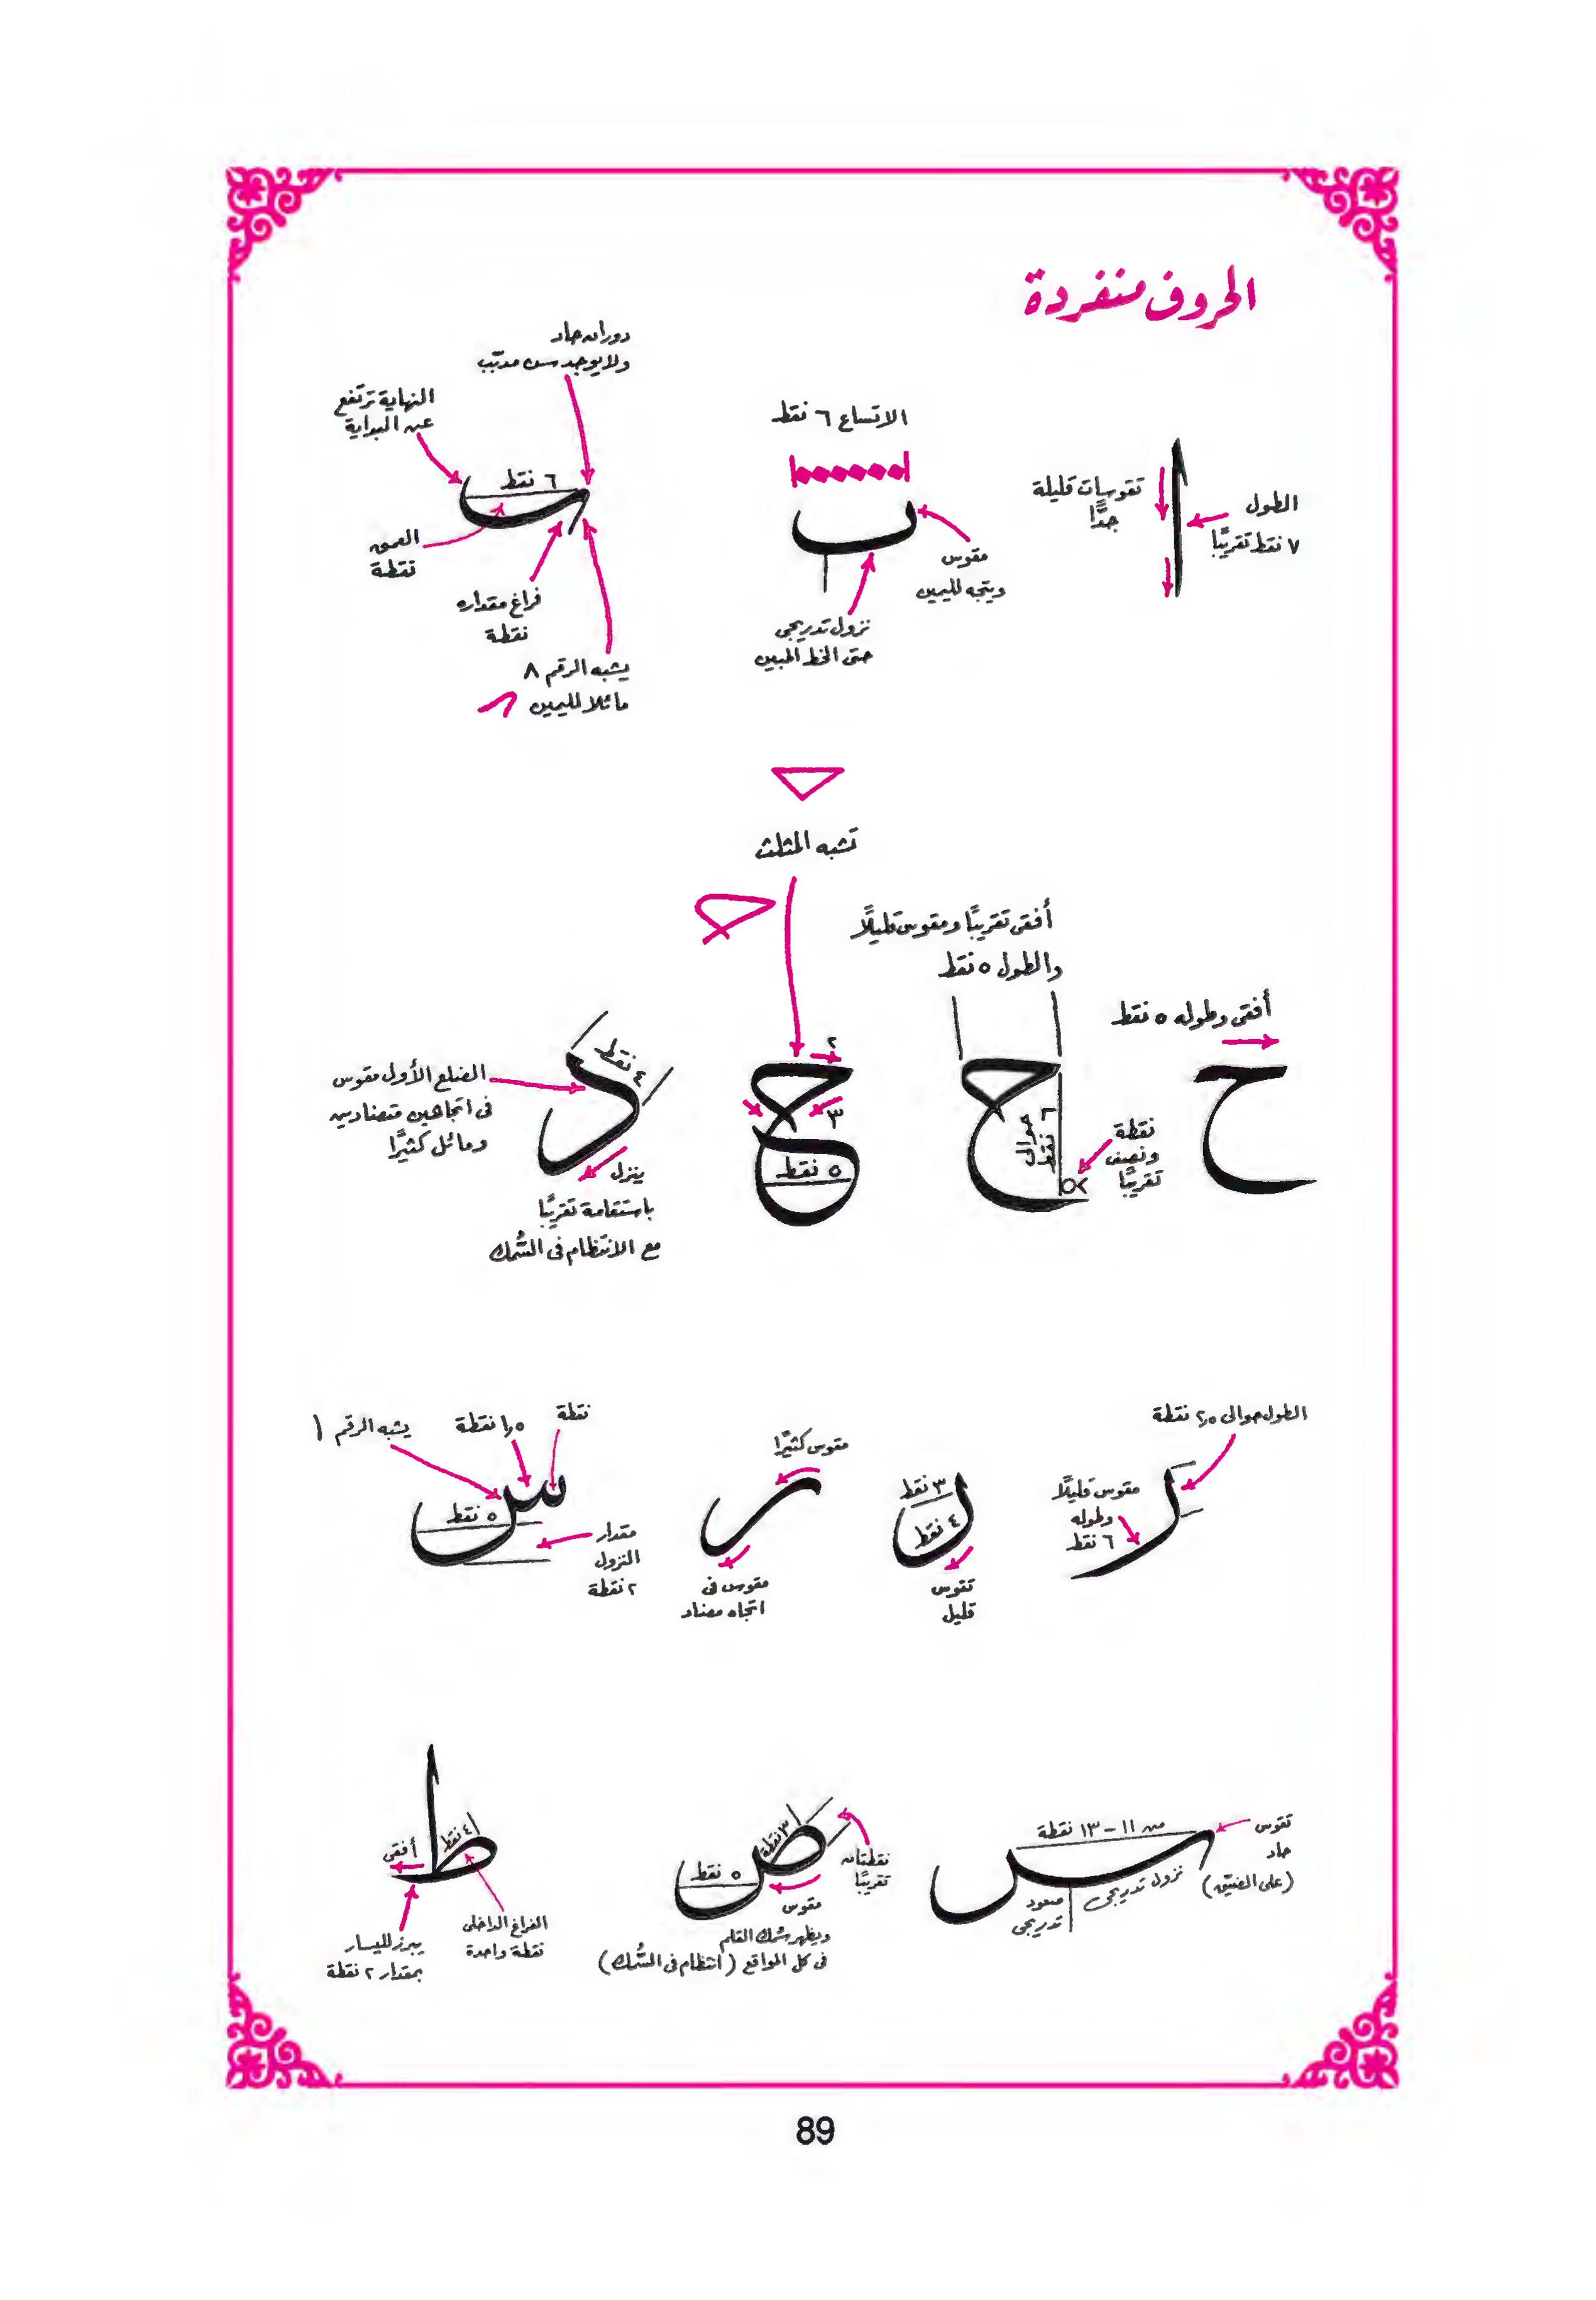 الحروف منفردة
الطول
٧ نقط تقريبًا
تقوسات قليلة
جدًّا
الاتساع ٦ نقط
مقوس
ويتجه لليمين
نزول تدريجى
حتى الخط المبين
دوران حاد
ولا يوجد سن مدبّب
النهاية ترتفع
عن البداية
٦ نقط
العمق
نقطة
فراغ مقداره
نقطة
يشبه الرقم ٨
مائلا لليمين
تشبه المثلث
أفقى وطوله ٥ نقط
ح
أفقى تقريبًا ومقوس قليلًا
والطول ٥ نقط
حوالى
٦ نقط
نقطة
ونصف
تقريبًا
٢
٣
٥ نقط
٤ نقط
الضلع الأول مقوس
فى اتجاهين متضادين
ومائل كثيرًا
ينزل
باستقامة تقريبًا
مع الانتظام فى السُّمك
الطول حوالى ٢٫٥ نقطة
مقوس قليلًا
وطوله
٦ نقط
٣ نقط
٤ نقط
تقوس
قليل
مقوس كثيرًا
مقوس فى
اتجاه مضاد
نقطة
١٫٥ نقطة
يشبه الرقم ١
س
٥ نقط
مقدار
النزول
٢ نقطة
من ١١ - ١٣ نقطة
تقوس
حاد
(على الضيّق)
نزول تدريجى
صعود
تدريجى
٣ نقطة
ص
٥ نقط
نقطتان
تقريبًا
مقوس
ويظهر سُمك القلم
فى كل المواقع (انتظام فى السُّمك)
ط
٤ نقط
أفقى
الفراغ الداخلى
نقطة واحدة
يبرز لليسار
بمقدار ٢ نقطة
89